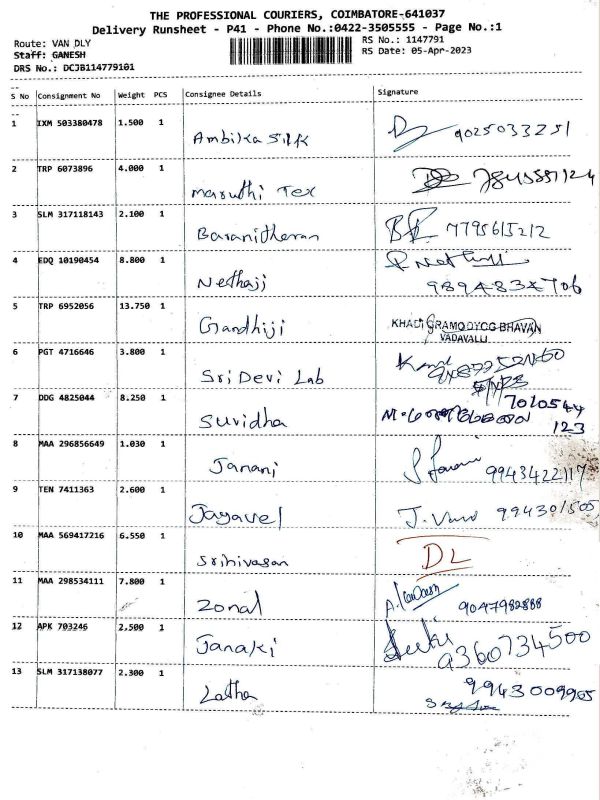 THE PROFESSIONAL COURIERS, COIMBATORE-641037
Delivery Runsheet - P41 - Phone No.:0422-3505555 - Page No.:1
Route: VAN DLY
RS No.: 1147791
Staff: GANESH
RS Date: 05-Apr-2023
DRS No.: DCJB114779101
S No Consignment No Weight PCS Consignee Details Signature
1 IXM 503380478 1.500 1 Ambika Silk 9025033251
2 TRP 6073896 4.000 1 Maruthi Tex
3 SLM 317118143 2.100 1 Baranitharan 7795615212
4 EDQ 10190454 8.800 1 Nethaji
5 TRP 6952056 13.750 1 Gandhiji KHADI GRAMODYOG BHAVAN
VADAVALLI
6 PGT 4716646 3.800 1 Sri Devi Lab
7 DDG 4825044 8.250 1 Suvidha 7010544
123
8 MAA 296856649 1.030 1 Janani 9943422117
9 TEN 7411363 2.600 1 Jayavel J. 994301505
10 MAA 569417216 6.550 1 Srinivasan DL
11 MAA 298534111 7.800 1 Zonal 9047982888
12 APK 703246 2,500 1 Janaki 9360734500
13 SLM 317138077 2.300 1 Latha 9943009905